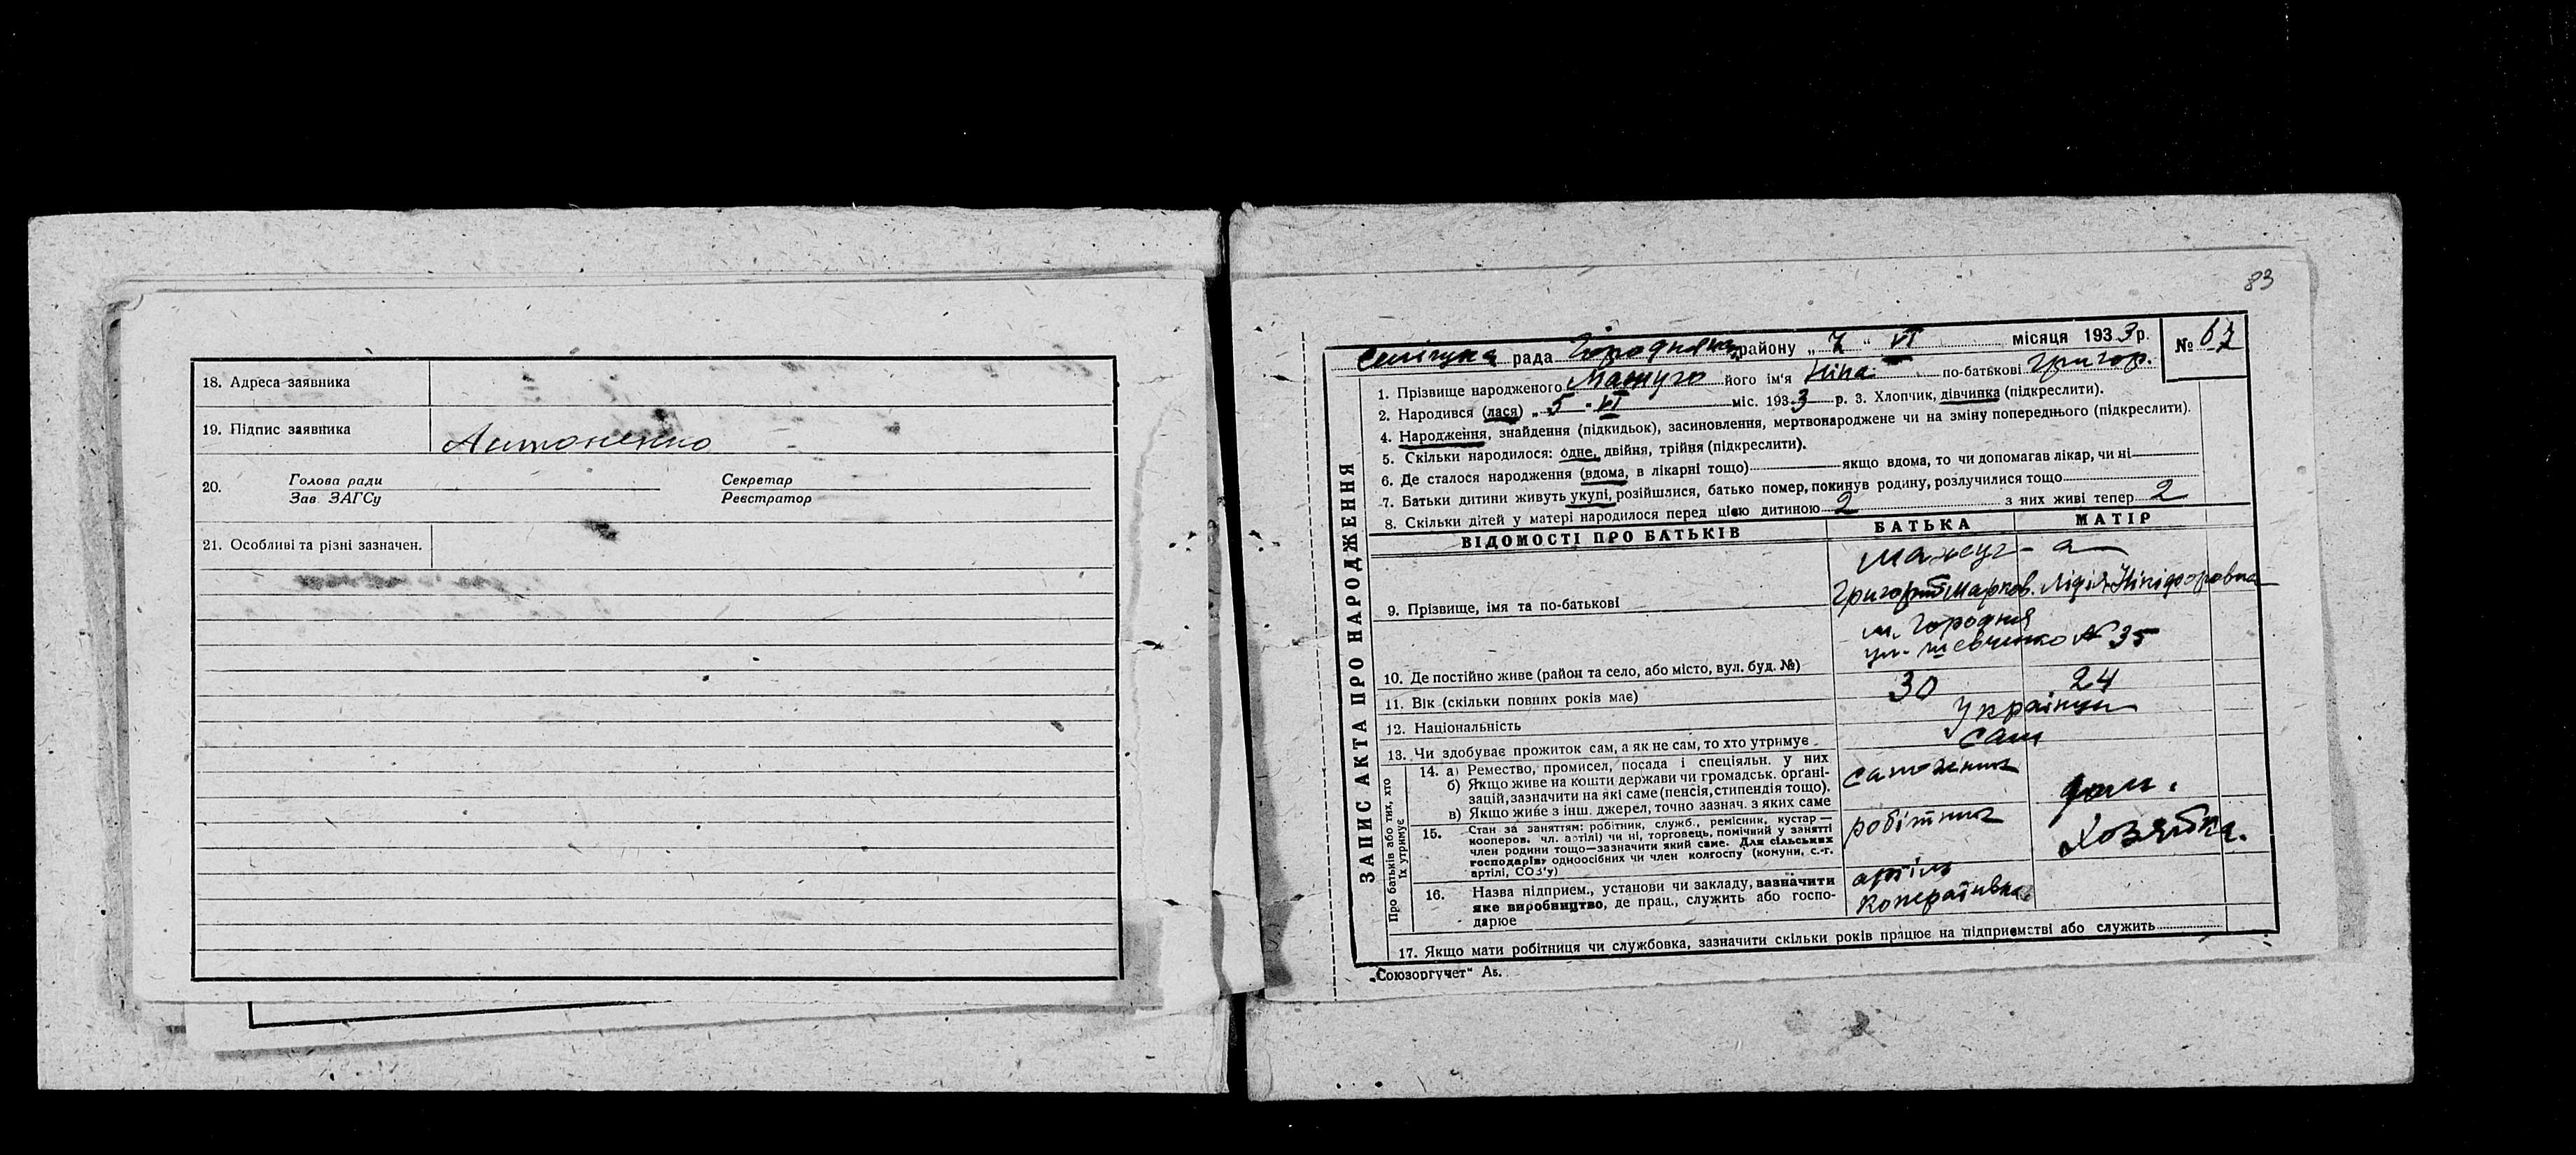 18. Адреса заявника
19. Підпис заявника Антоненко
20. Голова ради Секретар
Зав. ЗАГСу Реєстратор
21. Особливі та різні зазначен.
83
ЗАПИС АКТА ПРО НАРОДЖЕННЯ
рада району „7“ VI місяця 1933 р. № 67
1. Прізвище народженого Мажуго його ім'я Ніна по-батькові Григор.
2. Народився (лася) „5 - VI міс. 1933 р. 3. Хлопчик, дівчинка (підкреслити).
4. Народження, знайдення (підкидьок), засиновлення, мертвонароджене чи на зміну попереднього (підкреслити).
5. Скільки народилося: одне, двійня, трійня (підкреслити).
6. Де сталося народження (вдома, в лікарні тощо) якщо вдома, то чи допомагав лікар, чи ні
7. Батьки дитини живуть укупі, розійшлися, батько помер, покинув родину, розлучилися тощо
8. Скільки дітей у матері народилося перед цією дитиною 2 з них живі тепер 2
ВІДОМОСТІ ПРО БАТЬКІВ БАТЬКА МАТІР
Мажуг - а
9. Прізвище, імя та по-батькові Григорій Марков. Лідія Нікіфоровна
м. Городня
ул. Шевченко № 35
10. Де постійно живе (район та село, або місто, вул. буд. №)
11. Вік (скільки повних років має) 30 24
12. Національність Українці
13. Чи здобуває прожиток сам, а як не сам, то хто утримує сам
Про батьків або тих, хто їх утримує
14. а) Ремество, промисел, посада і спеціяльн. у них сапожник
б) Якщо живе на кошти держави чи громадськ. організацій, зазначити на які саме (пенсія, стипендія тощо).
в) Якщо живе з інш. джерел, точно зазнач. з яких саме
дом.
хозяйка.
15. Стан за заняттям: робітник, служб., ремісник, кустар—
кооперов. чл. артілі) чи ні, торговець, помічний у занятті
член родини тощо—зазначити який саме. Для сільських
господарів, одноосібних чи член колгоспу (комуни, с.-г.
артілі, СОЗ'у)
робітник
16. Назва підприєм., установи чи закладу, вазначити
яке виробництво, де прац., служить або госпо-
дарює
артіль
17. Якщо мати робітниця чи службовка, зазначити скільки років працює на підприємстві або служить
„Союзоргучет“ Аб.